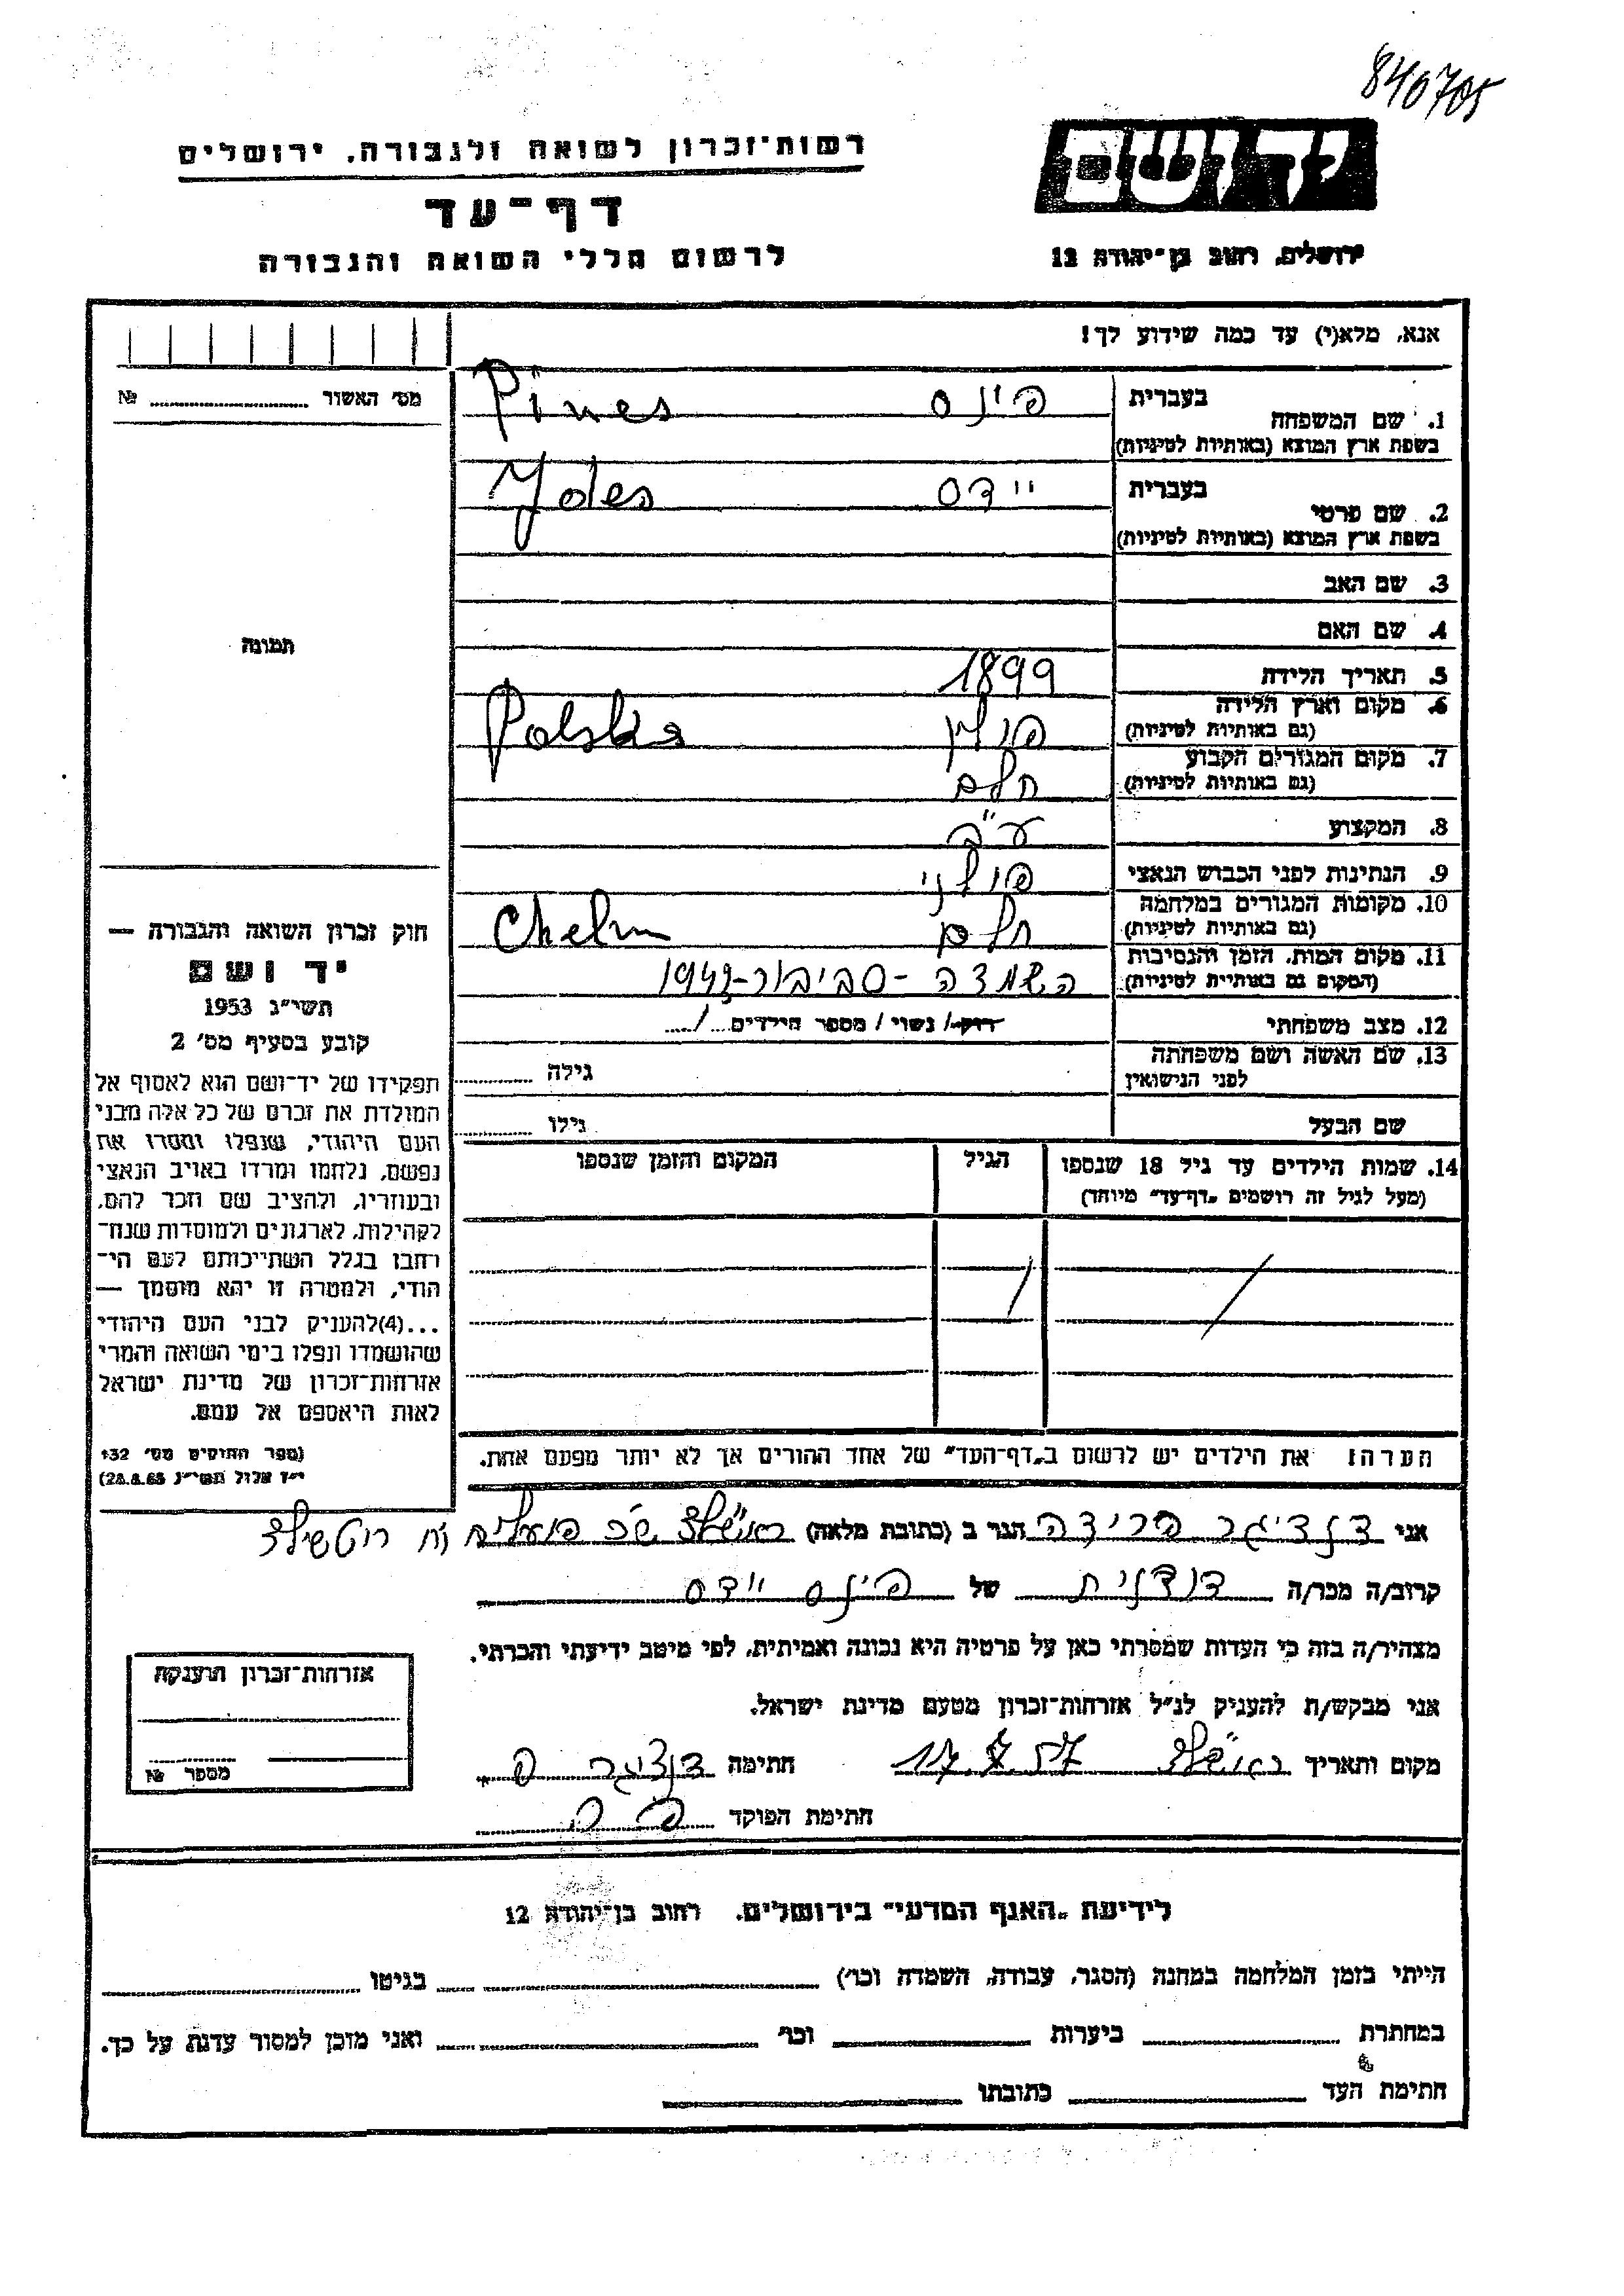 840705
רשות־זכרון לשואה ולגבורה, ירושלים
יד ושם
דף־עד
לרשום חללי השואה והגבורה
ירושלים, רחוב בן־יהודה 12
אנא, מלא(י) עד כמה שידוע לך!
מס' האשור № 
בעברית פינס Pines
1. שם המשפחה
בשפת ארץ המוצא (באותיות לטיניות)
בעברית יידס Ydes
2. שם פרטי
בשפת ארץ המוצא (באותיות לטיניות)
3. שם האב
4. שם האם
תמונה
5. תאריך הלידה 1899
6. מקום וארץ הלידה
(גם באותיות לטיניות) פולין Polska
7. מקום המגורים הקבוע
(גם באותיות לטיניות) חלם
8. המקצוע עק"ב
9. הנתינות לפני הכבוש הנאצי פולני
10. מקומות המגורים במלחמה
(גם באותיות לטיניות) חלם Chelm
11. מקום המות, הזמן והנסיבות
(המקום גם באותיות לטיניות) השמדה - סביבור - 1942
12. מצב משפחתי רוק/ נשוי / מספר הילדים /
13. שם האשה ושם משפחתה
לפני הנישואין גילה
שם הבעל גילו
14. שמות הילדים עד גיל 18 שנספו
(מעל לגיל זה רושמים „דף־עד" מיוחד)
הגיל
המקום והזמן שנספו
הערה: את הילדים יש לרשום ב„דף־העד" של אחד ההורים אך לא יותר מפעם אחת.
חוק זכרון השואה והגבורה —
יד ושם
תשי"ג 1953
קובע בסעיף מס' 2
תפקידו של יד־ושם הוא לאסוף אל
המולדת את זכרם של כל אלה מבני
העם היהודי, שנפלו ומסרו את
נפשם, נלחמו ומרדו באויב הנאצי
ובעוזריו, ולהציב שם וזכר להם,
לקהילות, לארגונים ולמוסדות שנח־
רבו בגלל השתייכותם לעם הי־
הודי, ולמטרה זו יהא מוסמך —
...(4)להעניק לבני העם היהודי
שהושמדו ונפלו בימי השואה והמרי
אזרחות־זכרון של מדינת ישראל
לאות היאספם אל עמם.
(ספר החוקים מס' 132
י"ז אלול תשי"ג 28.8.53)
אני דנציגר פרידה הגר ב (כתובת מלאה) ראשל"צ שכ פועלים רח רוטשילד
קרוב/ה מכר/ה דודנית של פינס יידס
מצהיר/ה בזה כי העדות שמסרתי כאן על פרטיה היא נכונה ואמיתית, לפי מיטב ידיעתי והכרתי.
אני מבקש/ת להעניק לנ"ל אזרחות־זכרון מטעם מדינת ישראל.
מקום ותאריך ראשל"צ 17.7.57 חתימה דנציגר פ.
חתימת הפוקד
אזרחות־זכרון הוענקה
מספר №
לידיעת „האגף המדעי" בירושלים, רחוב בן־יהודה 12
הייתי בזמן המלחמה במחנה (הסגר, עבודה, השמדה וכו') בגיטו
במחתרת ביערות וכו' ואני מוכן למסור עדות על כך.
חתימת העד כתובתו